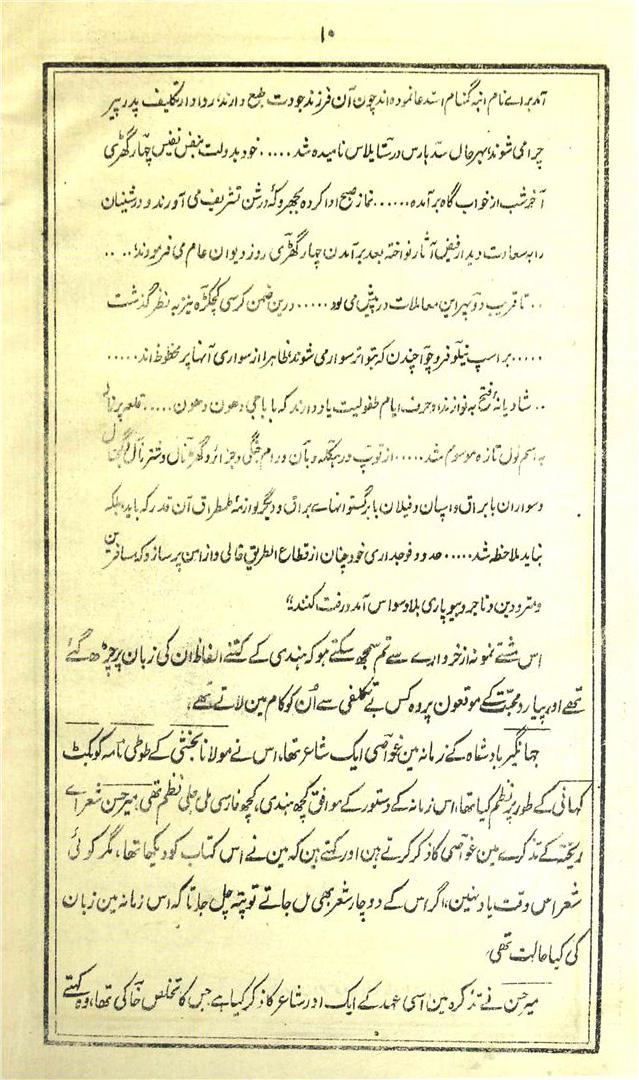 ۱۰
آمد براے نام انبہ گمنام استدعا نمودہ اند چون آن فرزند جودت طبع دارند، روادار تکلیف پدر پیر
چرا می شوند، بہرحال سدہارس و رسنا بلاس نامیدہ شد ..... خود بدولت بنفس نفیس چہار گھڑی
آخر شب از خواب گاہ برآمدہ ...... نماز صبح ادا کردہ بجھروکۂ درشن تشریف می آورند و درشنیان
را بہ سعادت دیدار فیض آثار نواختہ بعد برآمدن چہار گھڑی روز دیوان عام می فرمودند، .. ..
.. تا قریب دوپہر این معاملات درپیش می بود ..... درین ضمن کرسی کچکڑہ نیز بہ نظر گذشت
..... بر اسپ نیلو فرو چوا چندن کر بتواتر سوار می شوند ظاہرا از سواری آنہا پر محظوظ اند .....
.. شادیانۂ فتح بہ نوازند، و حرف ایام طفولیت یاد دارند کہ باباجی دھون دھون ..... قلعہ پر نالی
بہ اسم نول تازہ موسوم شد ..... از توپ و رہکلہ و بان و رام جنگی و جزائر و گھڑنال و شترنال و گجنال
و سواران با براق و اسپان و فیلان با برگستوانہاے براق و دیگر لوازمۂ طمطراق آن قدر کہ باید، بلکہ
نباید ملاحظہ شد ..... حدود فوجداری خود چنان از قطاع الطریق خالی و از امن پر سازد کہ مسافرین
و مترددین و تاجر و بیوپاری بلا وسواس آمد و رفت کنند،"
اس مشتے نمونہ از خروارے سے تم سمجھ سکتے ہو کہ ہندی کے کتنے الفاظ ان کی زبان پر چڑھ گئے
تھے اور پیار و محبت کے موقعون پر وہ کس بے تکلفی سے اُن کو کام مین لاتے تھے،
جہانگیر بادشاہ کے زمانہ مین غواصی ایک شاعر تھا، اس نے مولانا بخشی کے طوطی نامہ کو بکٹ
کہانی کے طور پر نظم کیا تھا، اس زمانہ کے دستور کے موافق کچھ ہندی، کچھ فارسی ملی جلی نظم تھی، میر حسن شعراے
ریختہ کے تذکرے مین غواصی کا ذکر کرتے ہین اور کہتے ہین کہ مین نے اس کتاب کو دیکھا تھا، مگر کوئی
شعر اس وقت یاد نہین، اگر اس کے دو چار شعر بھی مل جاتے تو پتہ چل جاتا کہ اس زمانہ مین زبان
کی کیا حالت تھی،
میر حسن نے تذکرہ مین اسی عہد کے ایک اور شاعر کا ذکر کیا ہے جس کا تخلص خاکی تھا، وہ کہتے